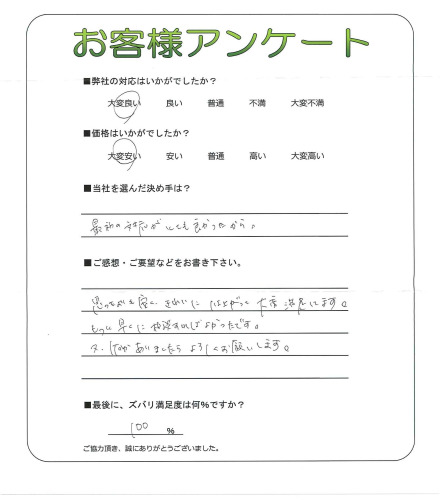 お客様アンケート
■弊社の対応はいかがでしたか？
大変良い 良い 普通 不満 大変不満
■価格はいかがでしたか？
大変安い 安い 普通 高い 大変高い
■当社を選んだ決め手は？
最初の対応がとても良かったから。
■ご感想・ご要望などをお書き下さい。
思ったよりも安く、きれいに仕上がって大変満足してます。
もっと早くに相談すればよかったです。
又、何かありましたらよろしくお願いします。
■最後に、ズバリ満足度は何%ですか？
100 %
ご協力頂き、誠にありがとうございました。